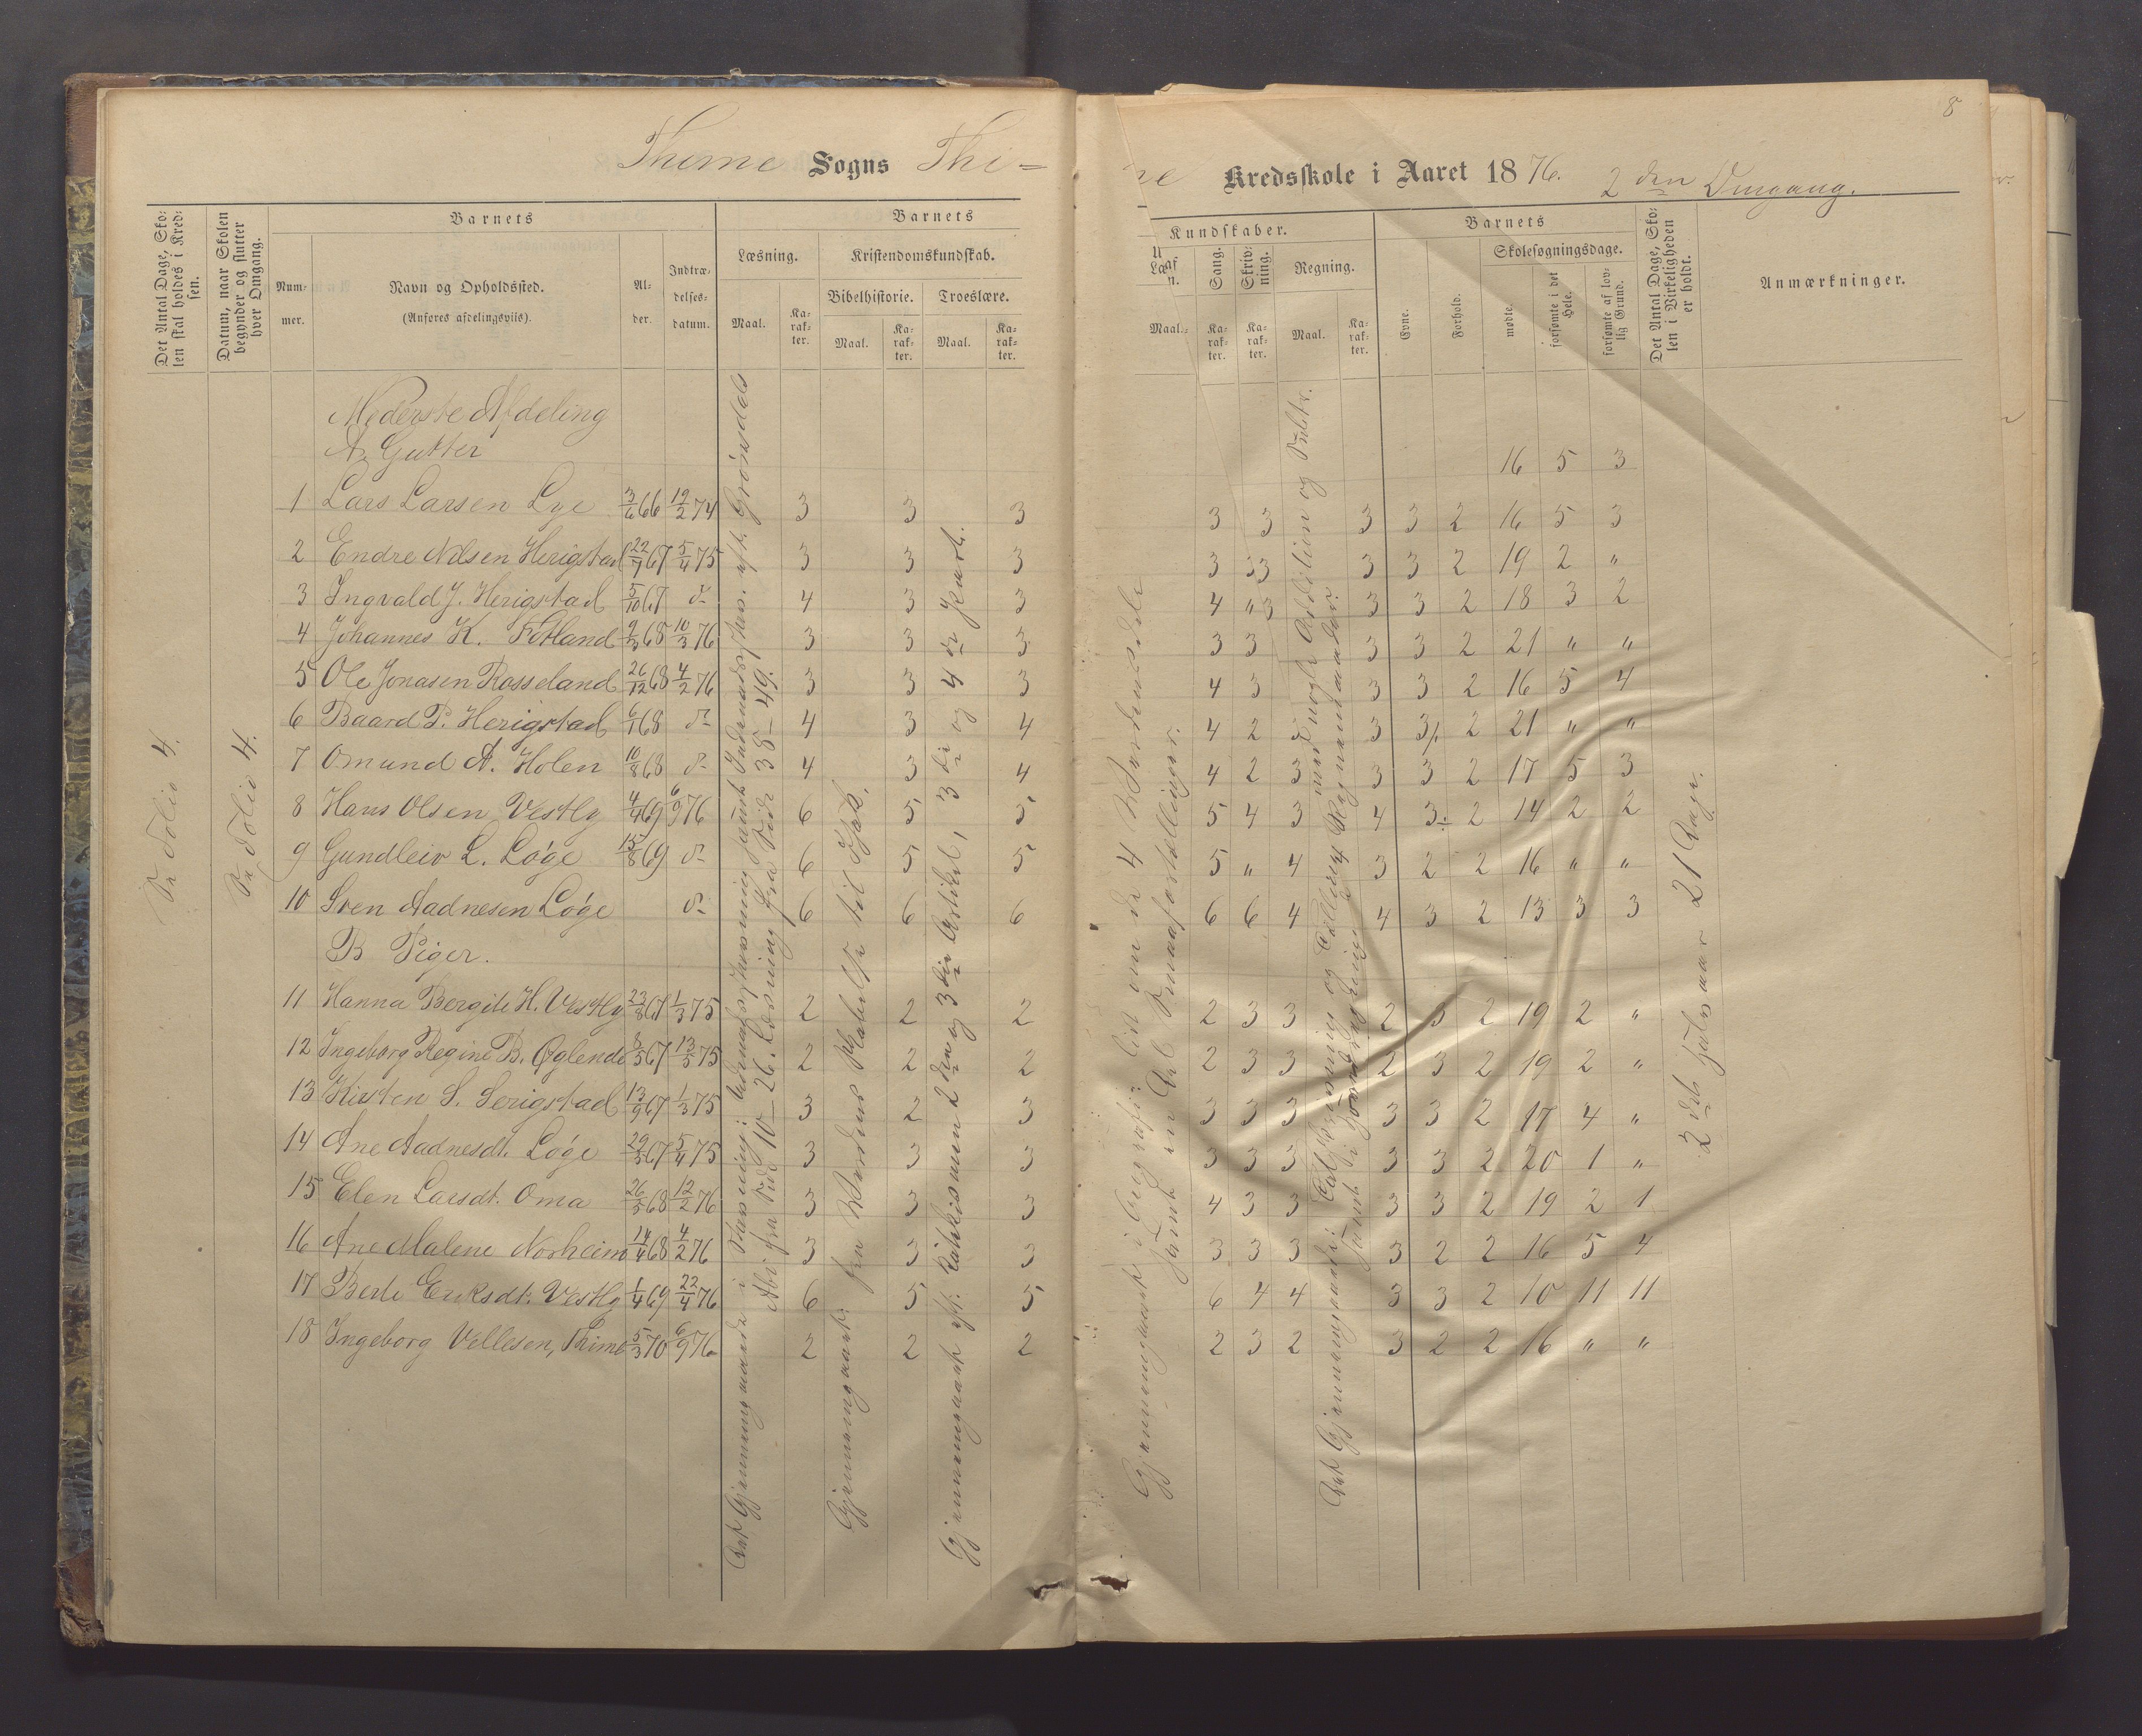 8
Thime Sogns Thi=
ne Kredsskole i Aaret 1876. 2den Omgang.
Det Antal Dage, Sko-
len skal holdes i Kred-
sen.
Datum, naar Skolen
begynder og slutter
hver Omgang.
Num-
mer.
Barnets
Navn og Opholdssted.
(Anføres afdelingsviis).
Al-
der.
Indtræ-
delses-
datum.
Barnets
Læsning.
Kristendomskundskab.
Bibelhistorie. Troeslære.
Maal. Ka-
rak-
ter. Maal. Ka-
rak-
ter. Maal. Ka-
rak-
ter.
Kundskaber.
Maal.
Sang. Skriv-
ning. Regning.
Ka-
rak-
ter. Ka-
rak-
ter. Maal. Ka-
rak-
ter.
Barnets
Evne. Forhold.
Skolesøgningsdage.
mødte. forsømte i det
Hele. forsømte af lov-
lig Grund.
Det Antal Dage, Sko-
len i Virkeligheden
er holdt.
Anmærkninger.
Se Folio 4.
Se Folio 4.
Nederste Afdeling
A. Gutter
16 5 3
1 Lars Larsen Lye 3/6 66 19/2 74 3 3 3 3 3 3 3 2 16 5 3
2 Endre Nilsen Herigstad 22/7 67 5/4 75 3 3 3 3 3 3 3 3 2 19 2 "
3 Ingvald J. Herigstad 5/10 67 d- 4 3 3 4 " 3 3 3 2 18 3 2
4 Johannes K. Fotland 9/3 68 10/3 76 3 3 3 3 3 3 3 2 21 " "
5 Ole Jonasen Rosseland 26/12 68 4/2 76 3 3 3 4 3 3 3 2 16 5 4
6 Baard P. Herigstad 6/1 68 d- 4 3 4 4 2 3 3 3 2 21 " "
7 Omund A. Holen 10/8 68 d- 4 3 4 4 2 3 3 3 2 17 5 3
8 Hans Olsen Vestly 4/4 69 6/9 76 6 5 5 5 4 3 4 3 2 14 2 2
9 Gundleiv L. Løge 15/8 69 d- 6 5 5 5 " 4 3 2 2 16 " "
10 Sven Aadnesen Løge d- 6 6 6 6 6 4 4 3 2 13 3 3
B Piger.
11 Hanna Bergite H. Vestly 23/8 67 1/3 75 2 2 2 2 3 3 2 3 2 19 2 "
12 Ingeborg Regine B. Øglende 8/5 67 13/5 75 2 2 2 2 3 3 2 3 2 19 2 "
13 Kirsten S. Serigstad 13/9 67 1/3 75 3 2 3 3 3 3 3 3 2 17 4 "
14 Ane Aadnesdt. Løge 29/5 67 5/4 75 3 3 3 3 3 3 3 3 2 20 1 "
15 Elen Larsdt. Oma 26/5 68 12/2 76 3 3 3 4 3 3 3 3 2 19 2 1
16 Ane Malene Norheim 14/4 68 4/2 76 3 3 3 3 3 3 3 2 2 16 5 4
17 Berte Eriksdt. Vestly 1/4 69 22/4 76 6 5 5 6 4 4 3 3 2 10 11 11
18 Ingeborg Vellesen, Thime 5/3 70 6/9 76 2 2 2 2 3 2 3 2 2 16 " "
Abi fra Side 10-26. Læsning fra Side 38-49.
Gjennemgaaet fra Verdens Skabelse til Jak.
Gjennemgaaet
Katekismen 2den og 3die Artikel, 3die og 4de Part.
2det Halvaar 21 Dage.